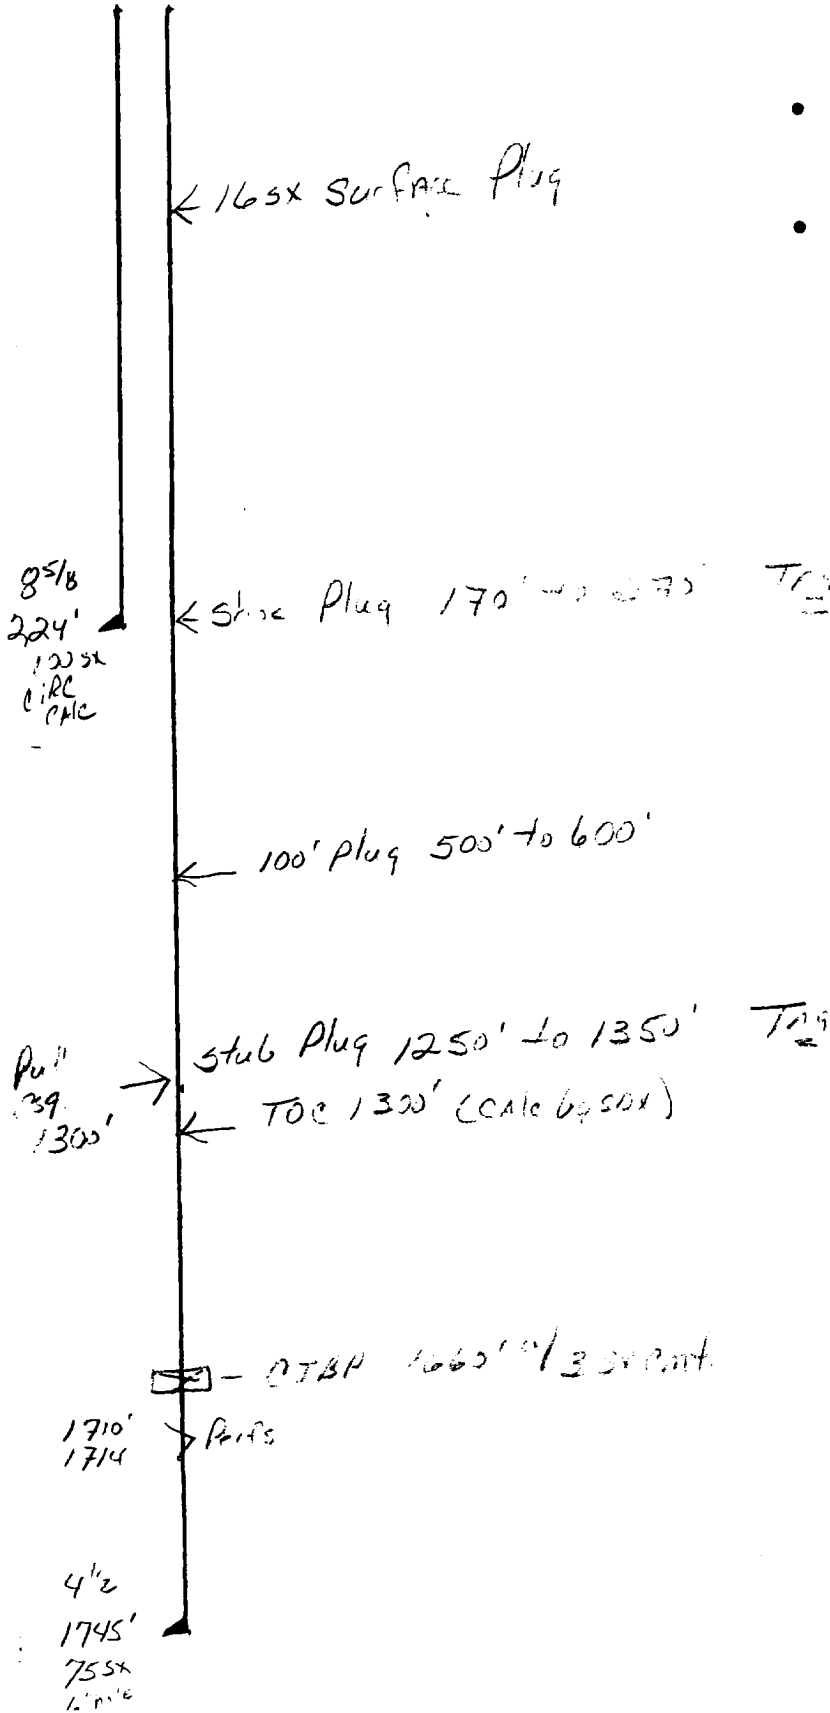 16 sx Surface Plug
8 5/8
224'
100 sx
CIRC
CALC
Shoe Plug 170' to 270' Tag
100' Plug 500' to 600'
Stub Plug 1250' to 1350' Tag
Pull
csg.
1300'
TOC 1300' (CALC
1660' w/ 3 sx cmt.
1710'
1714
Perfs
4 1/2
1745'
75 sx